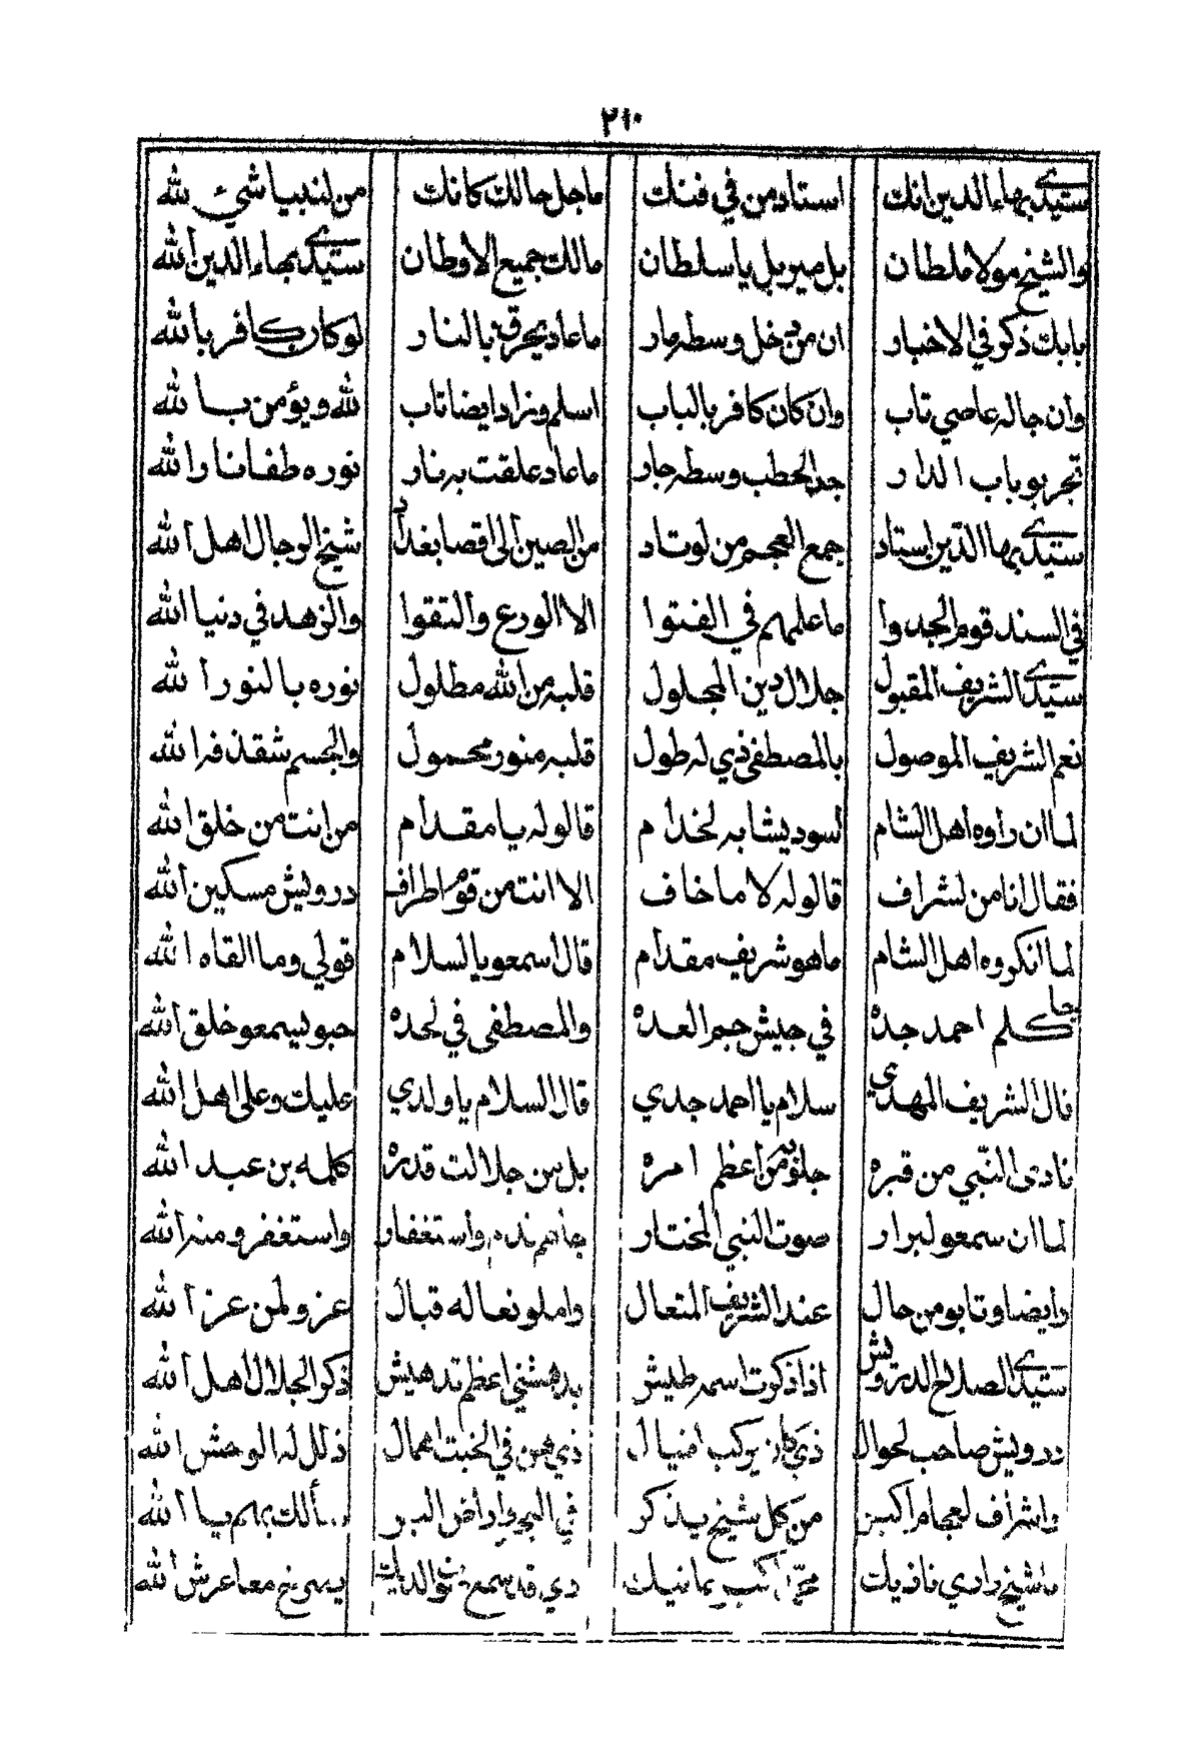 ٢١٠
سيدي بهاء الدين انك استاد من في فنك ما جل حالك كانك من لنبيا شيء لله
والشيخ مولا ملطان بل مير بل يا سلطان مالك جميع الاوطان سيدي بهاء الدين الله
بابك ذكر في الاخبار ان من دخل وسطه جار ما عاد يحرق بالنار لو كان كافر بالله
وان جاله عاصي تاب وان كان كافر بالباب اسلم وزاد ايضا تاب لله ويؤمن بالله
تجربو باب الدار جد الحطب وسطه جار ما عاد علقت به نار نوره طفا نار الله
سيدي بها الدين استاد جمع العجم من لوتاد من الصين الى اقصا بغداد شيخ الرجال اهل الله
في السند قوم الجدوا ما علمهم في الفتوا الا الورع والتقوا والزهد في دنيا الله
سيدي الشريف المقبول جلال دين المجلول قلبه من الله مطلول نوره بالنور الله
نعم الشريف الموصول بالمصطفى ذي له طول قلبه منور محمول والجسم شقذف الله
لما ان راوه اهل الشام لسود يشابه لخدام قالو له يا مقدام من انت من خلق الله
فقال انا من لشراف قالو له لا ما خاف الا انت من قوم اطراف درويش مسكين الله
لما انكروه اهل الشام ما هو شريف مقدام قال سمعو يا لسلام قولي وما القاه الله
جا كلم احمد جده في جيش جم العده والمصطفى في لحده حبو يسمعو خلق الله
قال الشريف المهدي سلام يا احمد جدي قال السلام يا ولدي عليك وعلى اهل الله
نادى النبي من قبره جاوبه من اعظم امره بل من جلالت قدره كلمه بن عبد الله
لما ان سمعو لبرار صوت النبي المختار جاهم ندم واستغفار واستغفرو منه الله
وايضا وتابو من حال عند الشريف المتعال واملو نعاله قبال عزو لمن عز الله
سيدي الصلاح الدرويش اذا ذكرت اسمه طيش يدهشني اعظم تدهيش ذكر الجلال اهل الله
درويش صاحب لحوال ذي كان يركب افيال ذي هن في الخبت اهمال ذلل له الوحش الله
واشراف لعجام اكبر من كل شيخ يذكر في البحر واراض البر سألك بهم يا الله
ما شيخ وادي ناديك يمانيك دي قد سمع معا عرش الله